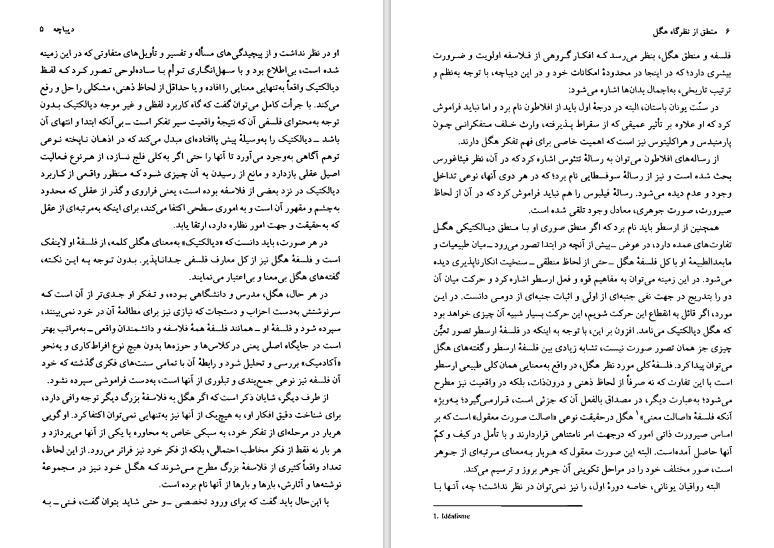 دیباچه ۵
او در نظر نداشت و از پیچیدگی‌های مسأله و تفسیر و تأویل‌های متفاوتی که در این زمینه
شده است، بی‌اطلاع بود و با سهل‌انگاری توأم با ساده‌لوحی تصور کرد که لفظ
دیالکتیک واقعاً به‌تنهایی معنایی را افاده و یا حداقل از لحاظ ذهنی، مشکلی را حل و رفع
می‌کند. با جرأت کامل می‌توان گفت که گاه کاربرد لفظی و غیر موجه دیالکتیک بدون
توجه به‌محتوای فلسفی آن که نتیجهٔ واقعیت سیر تفکر است ــ بی‌آنکه ابتدا و انتهای آن
باشد ــ دیالکتیک را به‌وسیلهٔ پیش پاافتاده‌ای مبدل می‌کند که در اذهان ناپخته نوعی
توهم آگاهی به‌وجود می‌آورد تا آنها را حتی اگر به‌کلی فلج نسازد، از هر نوع فعالیت
اصیل عقلی بازدارد و مانع از رسیدن به آن چیزی شود که منظور واقعی از کاربرد
دیالکتیک در نزد بعضی از فلاسفه بوده است، یعنی فراروی و گذر از عقلی که محدود
به‌چشم و مقهور آن است و به اموری سطحی اکتفا می‌کند، برای اینکه به‌مرتبه‌ای از عقل
که به‌حقیقت و جهت امور نظاره دارد، ارتقا یابد.
در هر صورت، باید دانست که «دیالکتیک» به‌معنای هگلی کلمه، از فلسفهٔ او لاینفک
است و فلسفهٔ هگل نیز از کل معارف فلسفی جدانا‌پذیر. بدون توجه به این نکته،
گفته‌های هگل بی‌معنا و بی‌اعتبار می‌نمایند.
در هر حال، هگل، مدرس و دانشگاهی بوده، و تفکر او جدی‌تر از آن است که
سرنوشتش به‌دست احزاب و دستجات که نیازی نیز برای مطالعهٔ آن در خود نمی‌بینند،
سپرده شود و فلسفهٔ او ــ همانند فلسفهٔ همهٔ فلاسفه و دانشمندان واقعی ــ به‌مراتب بهتر
است در جایگاه اصلی یعنی در کلاس‌ها و حوزه‌ها بدون هیچ نوع افراط‌کاری و به‌نحو
«آکادمیک» بررسی و تحلیل شود و رابطهٔ آن با تمامی سنت‌های فکری گذشته که خود
آن فلسفه نیز نوعی جمع‌بندی و تبلوری از آنها است، به‌دست فراموشی سپرده نشود.
از طرف دیگر، شایان ذکر است که اگر هگل به فلاسفهٔ بزرگ دیگر توجه وافی دارد،
برای شناخت دقیق افکار او، به‌هیچ‌یک از آنها نیز به‌تنهایی نمی‌توان اکتفا کرد. او گویی
هربار در مرحله‌ای از تفکر خود، به سبکی خاص به محاوره با یکی از آنها می‌پردازد و
هر بار نه فقط از فکر مخاطب احتمالی، بلکه از فکر خود نیز فراتر می‌رود. از این لحاظ،
تعداد واقعاً کثیری از فلاسفهٔ بزرگ مطرح می‌شوند که هگل خود نیز در مجموعهٔ
نوشته‌ها و آثارش، بارها و بارها از آنها نام برده است.
با این‌حال باید گفت که برای ورود تخصصی ــ و حتی شاید بتوان گفت، فنی ــ به
۶ منطق از نظرگاه هگل
فلسفه و منطق هگل، بنظر می‌رسد که افکار گروهی از فلاسفه اولویت و ضرورت
بیشری دارد؛ که در اینجا در محدودهٔ امکانات خود و در این دیباچه، با توجه به‌نظم و
ترتیب تاریخی، به‌اجمال بدان‌ها اشاره می‌شود:
در سنّت یونان باستان، البته در درجهٔ اول باید از افلاطون نام برد و اما نباید فراموش
کرد که او علاوه بر تأثیر عمیقی که از سقراط پذیرفته، وارث خلف متفکرانی چون
پارمنیدس و هراکلیتوس نیز است که اهمیت خاصی برای فهم تفکر هگل دارند.
از رساله‌های افلاطون می‌توان به رسالهٔ تئتتوس اشاره کرد که در آن، نظر فیثاغورس
بحث شده است و نیز از رسالهٔ سوفسطایی نام برد؛ که در هر دوی آنها، نوعی تداخل
وجود و عدم دیده می‌شود. رسالهٔ فیلبوس را هم نباید فراموش کرد که در آن از لحاظ
صیرورت، صورت جوهری، معادل وجود تلقی شده است.
همچنین از ارسطو باید نام برد که اگر منطق صوری او با منطق دیالکتیکی هگل
تفاوت‌های عمده دارد، در عوض ــ بیش از آنچه در ابتدا تصور می‌رود ــ میان طبیعیات و
مابعدالطبیعهٔ او با کل فلسفهٔ هگل ــ حتی از لحاظ منطقی ــ سنخیت انکارناپذیری دیده
می‌شود. در این زمینه می‌توان به مفاهیم قوه و فعل ارسطو اشاره کرد و حرکت میان آن
دو را بتدریج در جهت نفی جنبه‌ای از اولی و اثبات جنبه‌ای از دومی دانست. در این
مورد، اگر قائل به انقطاع این حرکت شویم، این حرکت بسیار شبیه آن چیزی خواهد بود
که هگل دیالکتیک می‌نامد. افزون بر این، با توجه به اینکه در فلسفهٔ ارسطو تصور تعیّن
چیزی جز همان تصور صورت نیست، تشابه زیادی بین فلسفهٔ ارسطو و گفته‌های هگل
می‌توان پیدا کرد. فلسفهٔ کلی مورد نظر هگل، در واقع به‌معنایی همان کلی طبیعی ارسطو
است با این تفاوت که نه صرفاً از لحاظ ذهنی و درون‌ذات، بلکه در واقعیت نیز مطرح
می‌شود؛ به‌عبارت دیگر، در مصداق بالفعل آن که جزئی است، قرار می‌گیرد؛ به‌ویژه
آنکه فلسفهٔ «اصالت معنی»۱ هگل درحقیقت نوعی «اصالت صورت معقول» است که بر
اساس صیرورت ذاتی امور که درجهت امر نامتناهی قراردارند و با تأمل در کیف و کمّ
آنها حاصل آمده‌است. البته این صورت معقول که هربار به‌معنای مرتبه‌ای از جوهر
است، صور مختلف خود را در مراحل تکوینی آن جوهر بروز و ترسیم می‌کند.
البته رواقیان یونانی، خاصه دورهٔ اول، را نیز نمی‌توان در نظر نداشت؛ چه، آنها با
1. Idéalisme